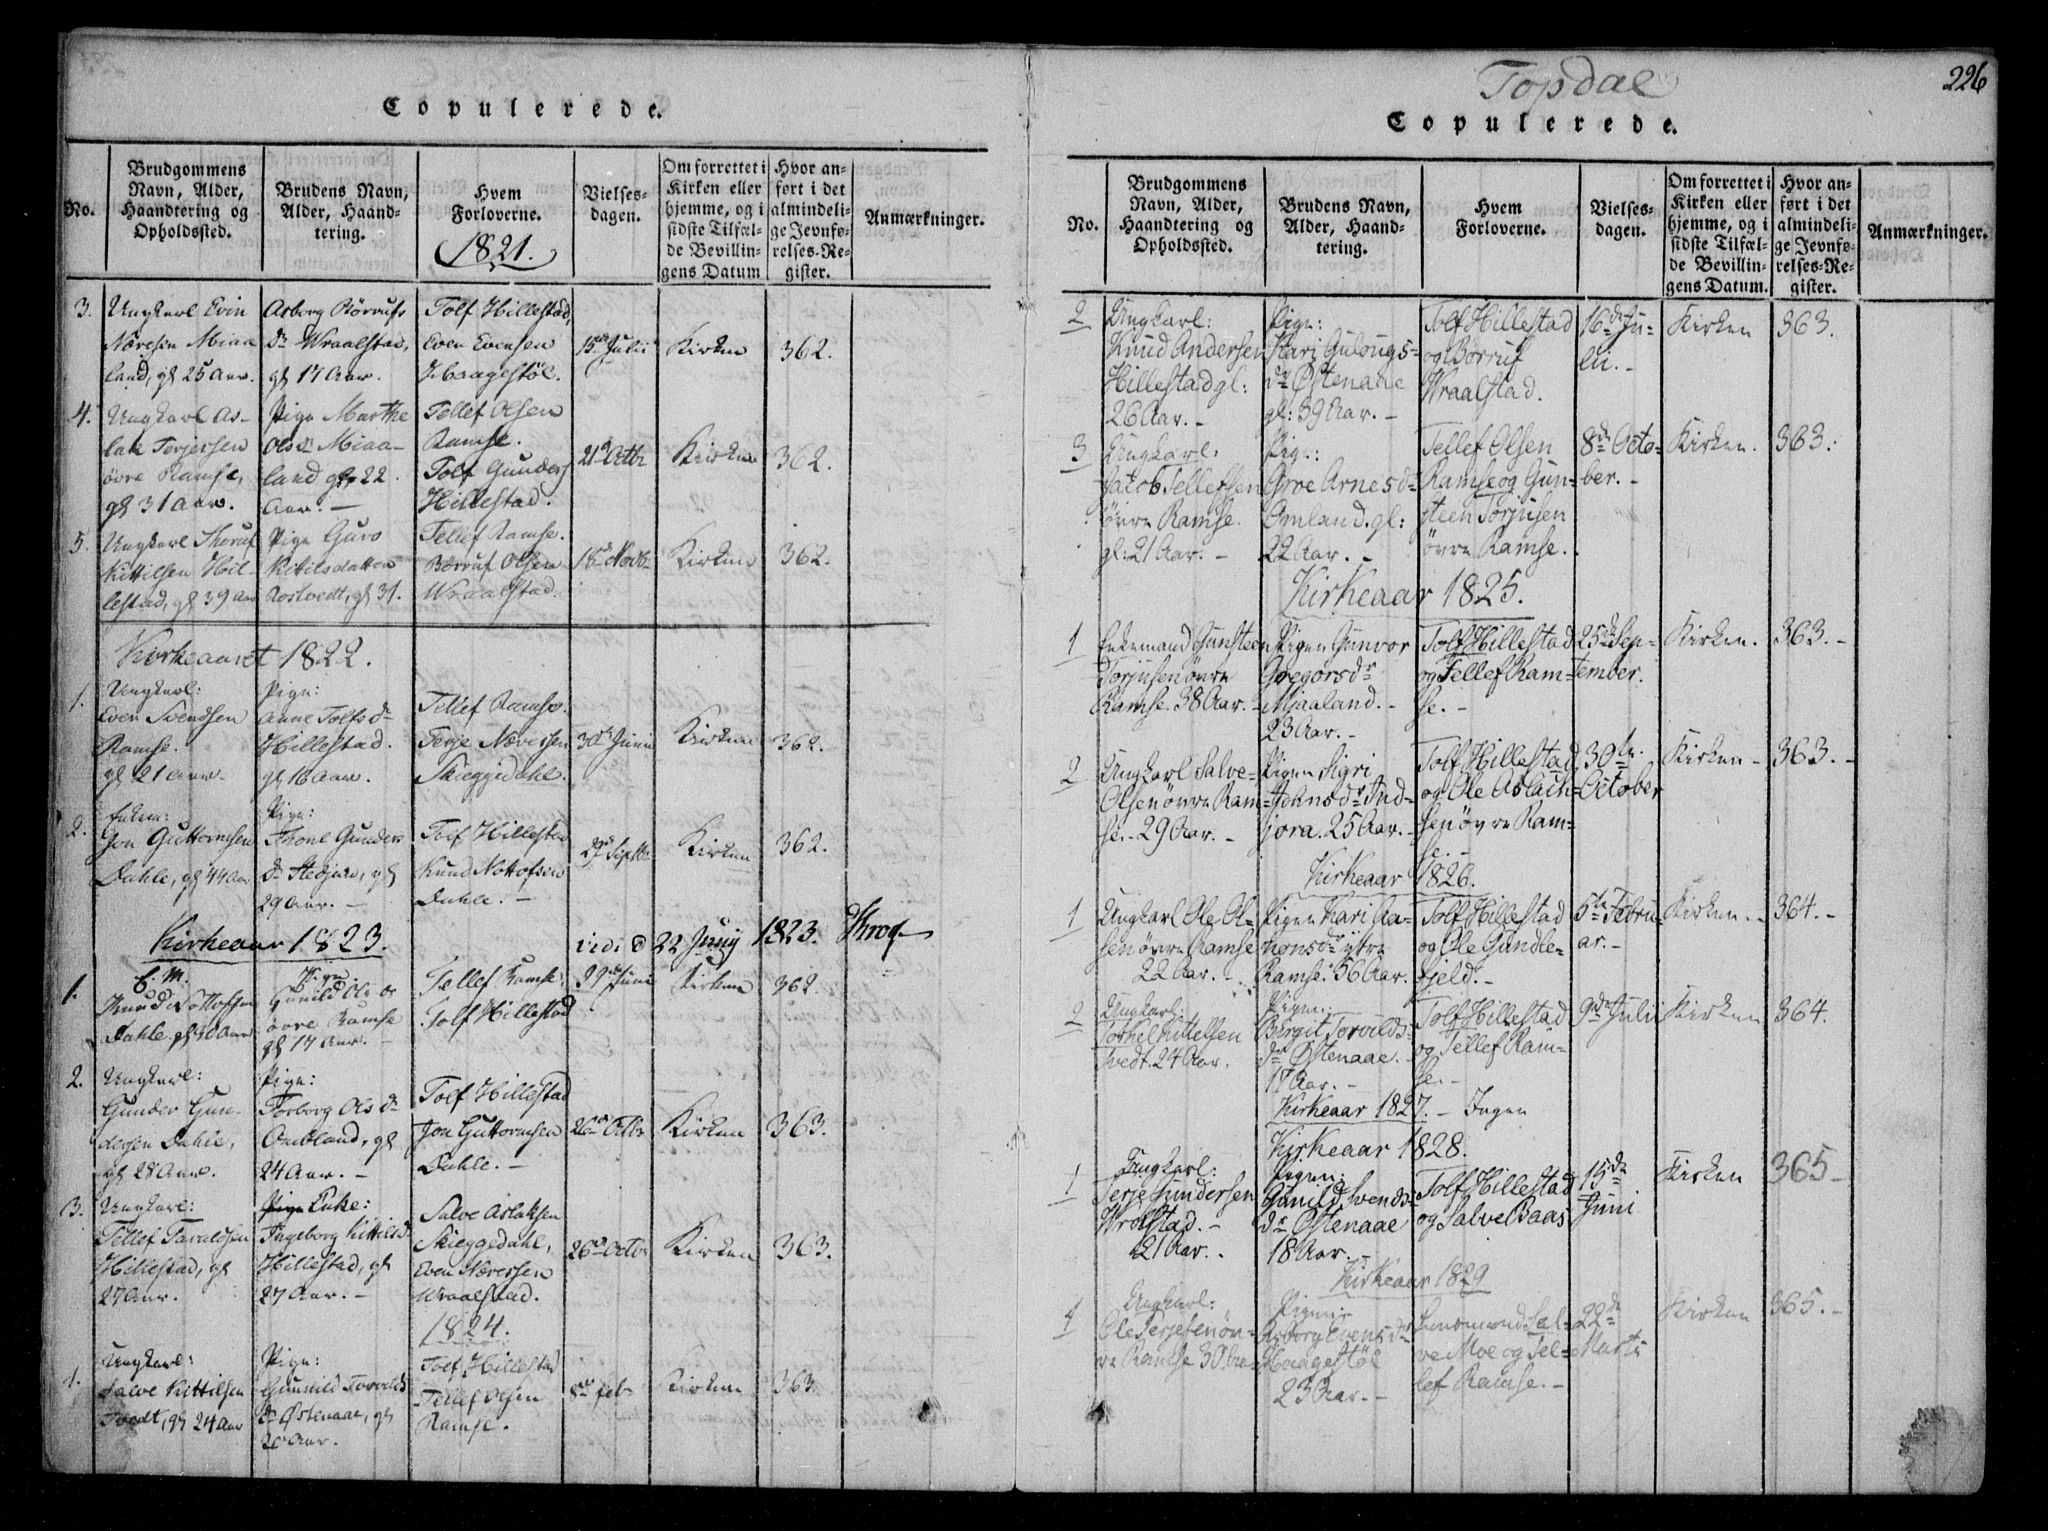 Copulerede.
No.
Brudgommens Navn, Alder, Haandtering og Opholdssted.
Brudens Navn, Alder, Haandtering.
Hvem Forloverne.
1821.
Vielses-dagen.
Om forrettet i Kirken eller hjemme, og i sidste Tilfælde Bevillingens Datum
Hvor anført i det almindelige Jevnførelses-Register.
Anmærkninger.
3.
Ungkarl Evin
Næresen Miaa
land, gl 25 Aar.
Asborg Börrufs
dr Wraalstad,
gl 17 Aar.
Tolf Hillestad,
Even Evensen
Haagestöl.
15de Julii
Kirken
362.
4.
Ungkarl As-
lak Terjersen
övre Ramse,
gl 31 Aar.
Pige Marthe
Olsdr Miaa-
land gl 22
Aar. -
Tellef Olsen
Ramse.
Tolf Gunders
Hillestad.
21de Octbr
Kirken
362.
5.
Ungkarl Thoruf
Kittilsen Hil-
lestad, gl 39 Aar
Pige Guro
Kitilsdatter
Rostvedt, gl 31.
Tellef Ramse.
Börruf Olsen
Wraalstad.
18de Novbr
Kirken
362.
Kirkeaaret 1822.
1.
Ungkarl:
Even Svendsen
Ramse.
gl 21 Aar.
Pige:
Anne Tolfsdr
Hillestad.
gl 16 Aar.
Tellef Ramse.
Terje Næversen
Skieggedahl.
30de Junii
Kirken
362.
2.
Enkem:
Jon Guttormsen
Dahle, gl 44 Aar
Pige:
Thone Gunders
dr Stedjure, gl
29 Aar. -
Tolf Hillestad
Knud Nottofsen
Dahle. -
29de Septbr
Kirken
362.
Kirkeaar 1823.
vidi d 22 Junij 1823. Krog
1.
E. M.
Knud Nottofsen
Dahle, gl 40 Aar
Pige
Gunild Olsdr
övre Ramse
gl 17 Aar. -
Tellef Ramse,
Tolf Hillestad
29de Junii
Kirken
362.
2.
Ungkarl:
Gunder Gun-
dersen Dahle,
gl 28 Aar.
Pige:
Torborg Olsdr
Ombland, gl
24 Aar. -
Tolf Hillestad
Jon Guttormsen
Dahle. -
26de Octbr
Kirken
363.
3.
Ungkarl:
Tellef Tavaldsen
Hillestad, gl
27 Aar.
Pige Enke:
Ingeborg Kittilsd
Hillestad, gl
27 Aar. -
Salve Aslaksen
Skieggedahl,
Even Næversen
Wraalstad.
26de Octbr
Kirken
363.
1824.
1.
Ungkarl:
Salve Kittilsen
Tvedt, gl 24 Aar
Pige:
Gunnild Torvilds
dr Østenaae, gl
20 Aar.
Tolf Hillestad
Tellef Olsen
Ramse.
8de Febr
Kirken
363.
Topdal
226
Copulerede.
No.
Brudgommens Navn, Alder, Haandtering og Opholdssted.
Brudens Navn, Alder, Haandtering.
Hvem Forloverne.
Vielses-dagen.
Om forrettet i Kirken eller hjemme, og i sidste Tilfælde Bevillingens Datum.
Hvor anført i det almindelige Jevnførelses-Register.
Anmærkninger.
2
Ungkarl:
Knud Andersen
Hillestad gl:
26 Aar. -
Pige:
Kari Gulougs-
dr Østenaae
gl: 39 Aar. -
Tolf Hillestad
og Börruf
Wraalstad.
16de Ju-
lii. -
Kirken
363.
3
Ungkarl:
Jacob Tellefsen
övre Ramse.
gl: 21 Aar. -
Pige:
Grve Arnesdr
Omland. gl:
22 Aar. -
Tellef Olsen
Ramse og Gun-
steen Torjusen
övre Ramse.
8de Octo-
ber. -
Kirken.
363.
Kirkeaar 1825.
1
Enkemand Gunsteen
Torjusen övre
Ramse. 38 Aar. -
Pigen Gunvor
Gregorsdr
Mjaaland. -
23 Aar. -
Tolf Hillestad
og Tellef Ram-
se. -
25de Sep-
tember.
Kirken.
363. -
2
Ungkarl Salve
Olsen övre Ram-
se. - 29 Aar. -
Pigen Sigri
Johnsdr Ind-
jora. 25 Aar. -
Tolf Hillestad
og Ole Aslach-
sen övre Ram-
se. -
30te
October
Kirken -
363. -
Kirkeaar 1826.
1
Ungkarl Ole Ol-
sen övre Ramse
22 Aar. -
Pigen Kari Aa-
nonsdr ytre
Ramse. 36 Aar.
Tolf Hillestad
og Ole Gundle-
fjeld. -
5te Febru-
ar. -
Kirken. -
364. -
2
Ungkarl:
Torkel Kittelsen
Tvedt. 24 Aar.
Pigen:
Birgit Torvilds-
dr Østenaae.
17 Aar. -
Tolf Hillestad
og Tellef Ram-
se. -
9de Julii
Kirken
364.
Kirkeaar 1827. - Ingen
Kirkeaar 1828.
1
Ungkarl:
Terje Gundersen
Wrolstad. -
21 Aar. -
Pigen:
Gunild Svends-
dr Østenaae
18 Aar. -
Tolf Hillestad
og Salve Baas
15de
Juni
Kirken
365 -
Kirkeaar 1829
1
Ungkarl:
Ole Terjesen öv-
re Ramse 30 Aar
Pigen:
Asborg Evensdr
Haagestöl
23 Aar. -
Lensmand Sal-
ve Moe og Tel-
lef Ramse. -
22de
Marts
Kirken
365. -